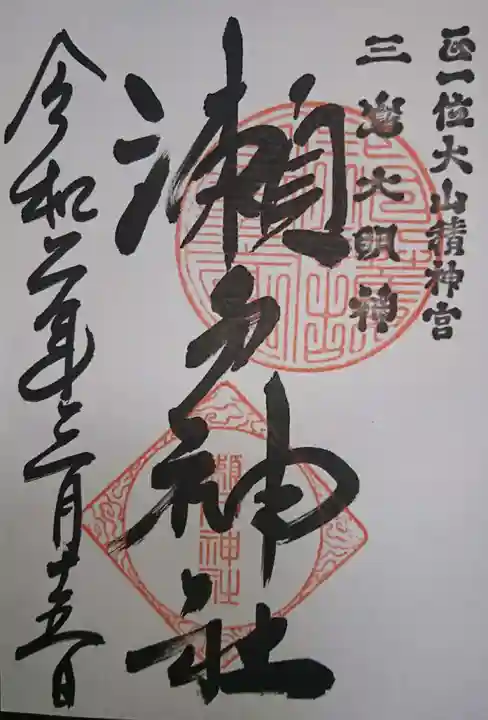 正一位大山積神宮
三嶌大明神
瀬戸神社
令和二年三月十五日
瀬戸神社